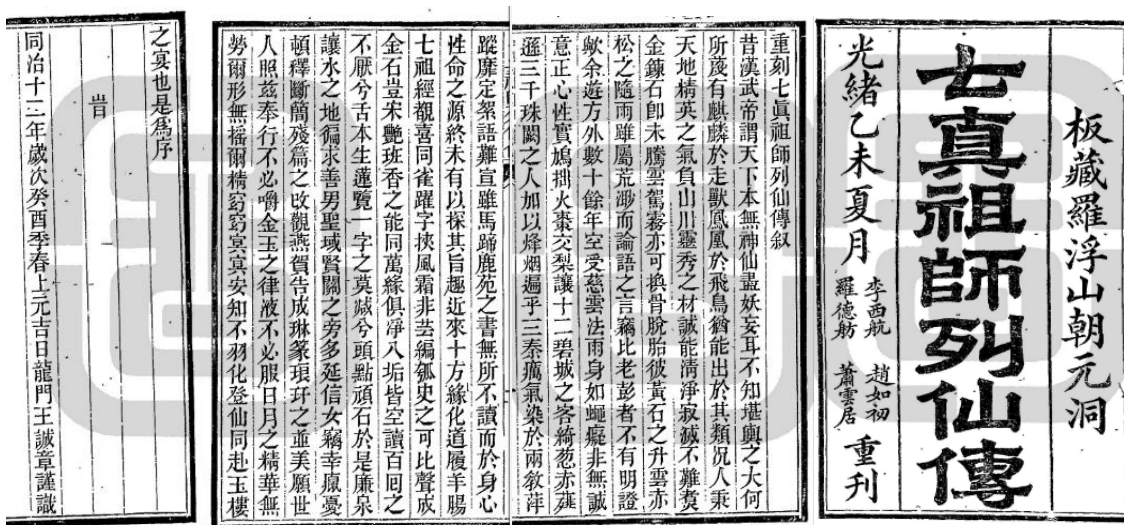 板藏羅浮山朝元洞
七真祖師列仙傳
光緒乙未夏月 李西航 羅德舫 趙如初 蕭雲居 重刊
重刻七眞祖師列仙傳叙
昔漢武帝謂天下本無神仙盡妖妄耳不知堪輿之大何
所茂有麒麟於走獸鳳凰於飛鳥猶能出於其類况人秉
天地精英之氣負山川靈秀之材誠能淸淨寂滅不難煑
金鍊石卽未騰雲駕霧亦可換骨脫胎彼黃石之升雲赤
松之隨雨雖屬荒渺而論語之言竊比老彭者不有明證
歟余遊方外數十餘年空受慈雲法雨身如蠅癡非無誠
意正心性實鳩拙火棗交梨讓十二碧城之客綺葱赤薤
遜三千珠闕之人加以烽烟遍乎三秦癘氣染於兩敎萍
蹤靡定絮語難宣雖馬蹄鹿苑之書無所不讀而於身心
性命之源終未有以探其旨趣近來十方緣化道履羊腸
七祖經觀喜同雀躍字挾風霜非芸編瓠史之可比聲成
金石豈宋艷班香之能同萬緣俱凈八垢皆空讀百回之
不厭兮舌本生蓮覽一字之莫减兮頭點頑石於是廉泉
讓水之地徧求善男聖域賢關之旁多延信女竊幸憂
頓釋斷簡殘篇之改觀燕賀告成琳篆琅玕之並美願世
人照玆奉行不必嚼金玉之律液不必服日月之精華無
勞爾形無搖爾精窈窈冥冥安知不羽化登仙同赴玉樓
之宴也是爲序
旹
同治十三年歲次癸酉季春上元吉日龍門王誠章謹識